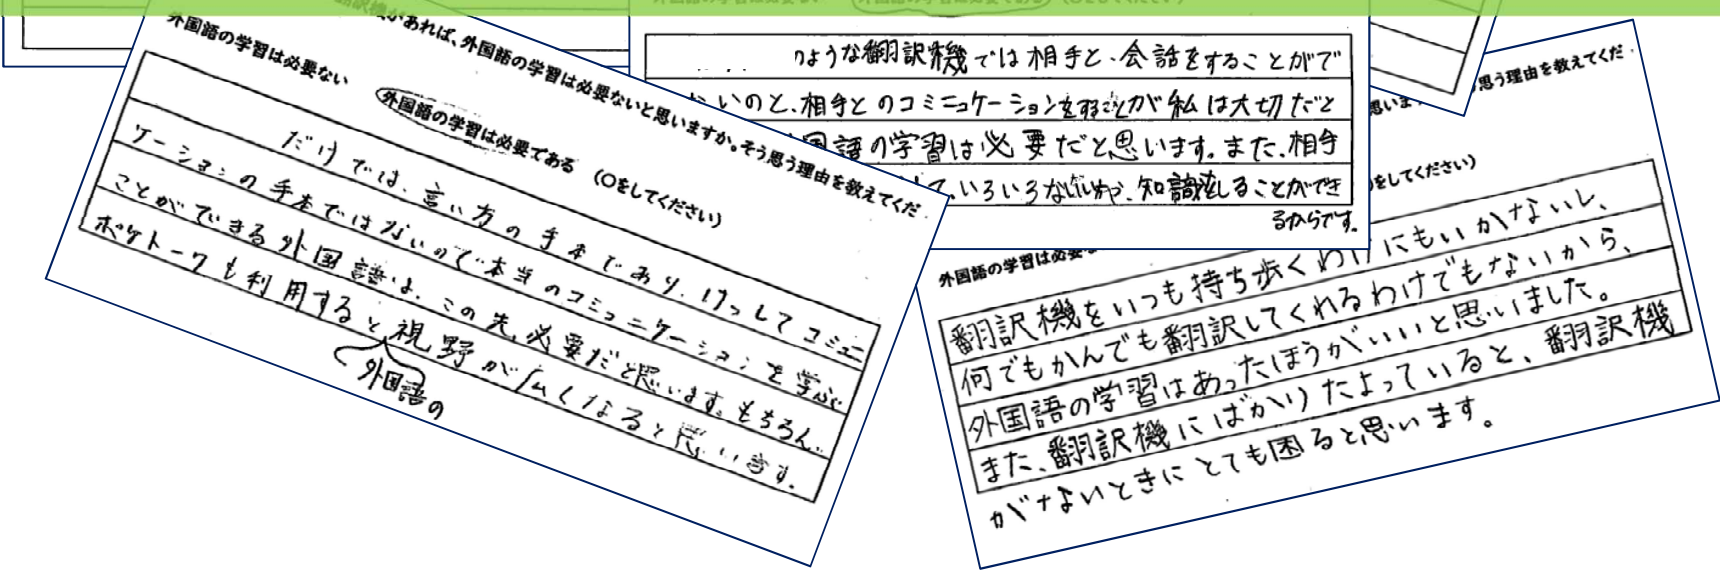 翻訳機があれば、外国語の学習は必要ないと思いますか。そう思う理由を教えてくだ
外国語の学習は必要ない 外国語の学習は必要である (○をしてください)
だけでは、言い方の手本であり、けっしてコミュニ
ケーションの手本ではないので本当のコミュニケーションを学ぶ
ことができる外国語は、この先、必要だと思います。もちろん、
ポケトークも利用すると視野が広くなると思います。
外国語の
のような翻訳機では相手と、会話をすることがで
ないのと、相手とのコミニュケーションをすることが私は大切だと
国語の学習は必要だと思います。また、相手
て、いろいろな 知識をしることができ
るからです。
思う理由を教えてくだ
をしてください)
外国語の学習は必要
翻訳機をいつも持ち歩くわけにもいかないし、
何でもかんでも翻訳してくれるわけでもないから、
外国語の学習はあったほうがいいと思いました。
また、翻訳機にばかりたよっていると、翻訳機
がないときにとても困ると思います。